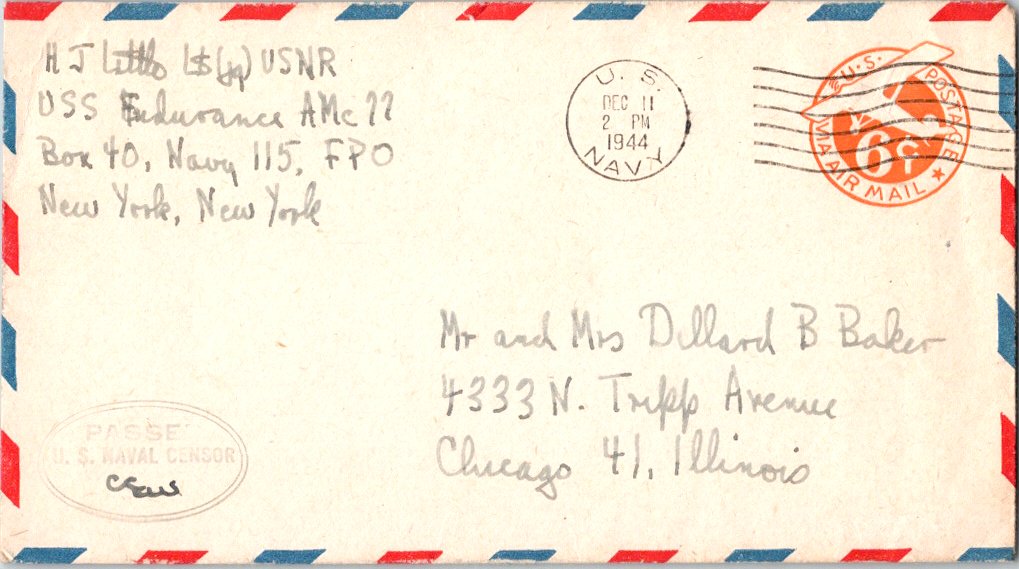 H J Little Lt(jg) USNR
USS Endurance AMc 77
Box 40, Navy 115, FPO
New York, New York
U. S.
DEC 11
2 PM
1944
NAVY
U.S. POSTAGE
6¢
VIA AIR MAIL
Mr and Mrs Dillard B Baker
4333 N. Tripp Avenue
Chicago 41, Illinois
PASSE
U. S. NAVAL CENSOR